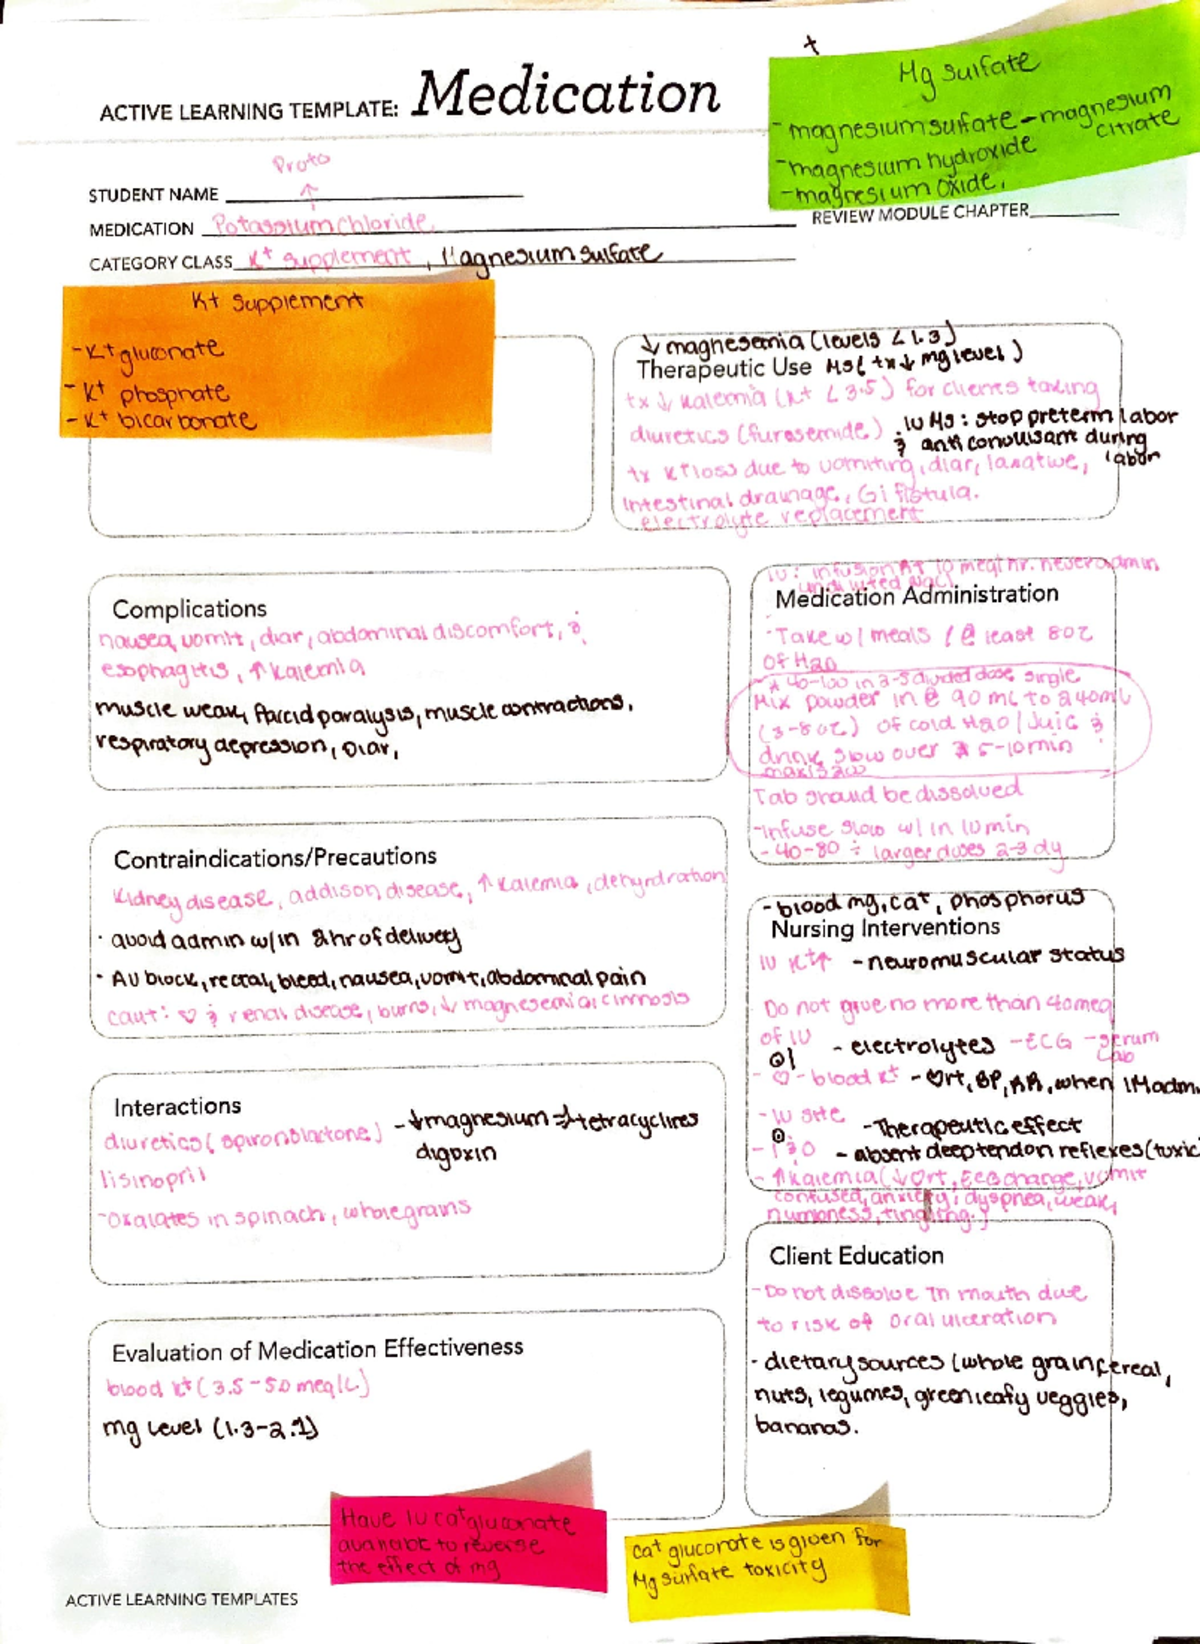 ACTIVE LEARNING TEMPLATE: Medication
+
Mg sulfate
- magnesium sulfate - magnesium citrate
- magnesium hydroxide
- magnesium oxide,
Proto
↑
STUDENT NAME
MEDICATION Potassium chloride
REVIEW MODULE CHAPTER
CATEGORY CLASS K+ supplement, Magnesium sulfate
K+ supplement
- K+ gluconate
- K+ phosphate
- K+ bicarbonate
↓ magnesemia (levels < 1.3)
Therapeutic Use Mg( tx ↓ mg level )
tx ↓ kalemia (K+ < 3.5) for clients taking
diuretics (furosemide)
. IV Mg: stop preterm labor
& anticonvulsant during
labor
tx K+ loss due to vomiting, diar, laxative,
intestinal drainage, Gi fistula.
electrolyte replacement
Complications
nausea, vomit, diar, abdominal discomfort, &
esophagitis, ↑ kalemia
muscle weak, flaccid paralysis, muscle contractions,
respiratory depression, Diar,
IV: infusion 10 meq/hr. never admin
undiluted
Medication Administration
- Take w/ meals / @ least 8oz
of H2O
* 40-100 in 2-5 divided dose, single
Mix powder in @ 90 mL to 240mL
(3-8oz) of cold H2O/Juic &
drink slow over 5-10min
Tab should be dissolved
- Infuse slow w/in 10min
- 40-80 ÷ larger doses 2-3 dy
Contraindications/Precautions
Kidney disease, addison disease, ↑ kalemia, dehyrdration
· avoid admin w/in 2hr of delivery
· AV block, rectal, bleed, nausea, vomit, abdominal pain
caut: ♡ & renal disease, burns, ↓ magnesemia, cirrhosis
- blood mg, Ca+, phosphorus
Nursing Interventions
IV K+↑ - neuromuscular status
Do not give no more than 40meq
of IV
- electrolytes - ECG - serum
Lab
- ♡ - blood K+ - ♡rt, BP, RR, when IM adm.
- IV site - Therapeutic effect
- I & O - absent deep tendon reflexes (toxic
- ↑ kalemia (↓ ♡rt, EcG change, vomit
confused, anxiety, dyspnea, weak,
numbness, tingling.)
Interactions
diuretics ( spironolactone) - ↓ magnesium => tetracyclines
digoxin
lisinopril
- Oxalates in spinach, whole grains
Client Education
- Do not dissolve in mouth due
to risk of oral ulceration
- dietary sources (whole grain cereal,
nuts, legumes, green leafy veggies,
bananas.
Evaluation of Medication Effectiveness
blood K+ (3.5-5.0 meq/L)
mg Level (1.3-2.1)
Have IV Ca+ gluconate
available to reverse
the effect of mg
Ca+ gluconate is given for
Mg sulfate toxicity
ACTIVE LEARNING TEMPLATES